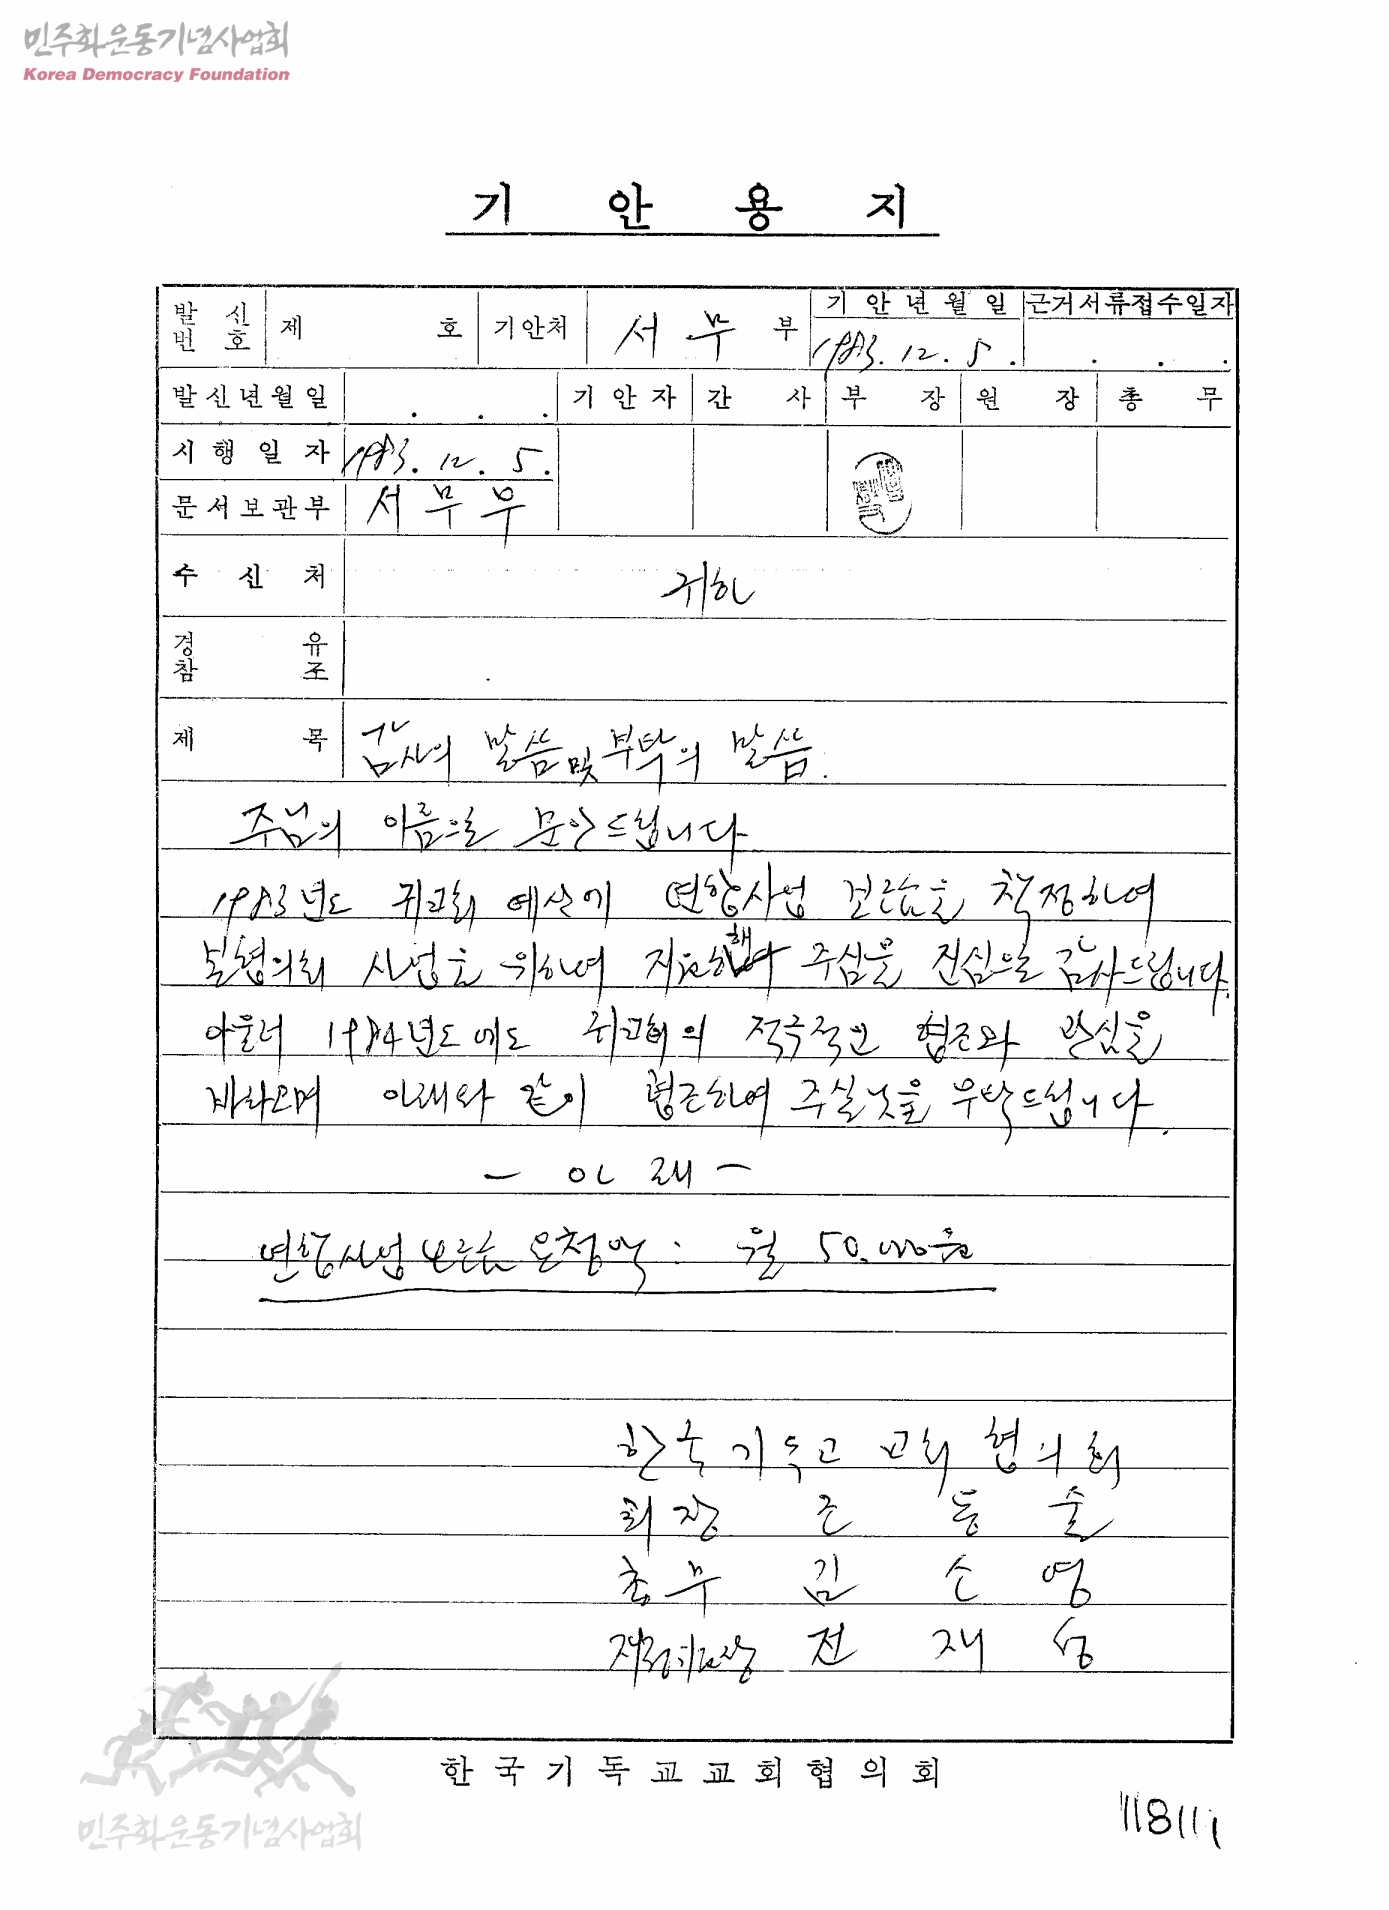 민주화운동기념사업회
Korea Democracy Foundation
기 안 용 지
발신번호 제 호 기안처 서무부 기안년월일 1983. 12. 5. 근거서류접수일자 . . .
발신년월일 . . . 기안자 간사 부장 원장 총무
시행일자 1983. 12. 5.
문서보관부 서무부
수신처 귀하
경유
참조
제목 감사의 말씀 및 부탁의 말씀.
주님의 이름으로 문안드립니다
1983년도 귀교회 예산에 연합사업 보조금을 책정하여
본협의회 사업을 위하여 지원해 주심을 진심으로 감사드립니다.
아울러 1984년도에도 귀교회의 적극적인 협조와 관심을
바라오며 아래와 같이 협조하여 주실것을 부탁드립니다.
- 아 래 -
연합사업 보조금 요청액 : 월 50,000원
한국기독교 교회 협의회
회장 조 용 술
총무 김 소 영
재정위원장 전 재 성
한국기독교교회협의회
민주화운동기념사업회